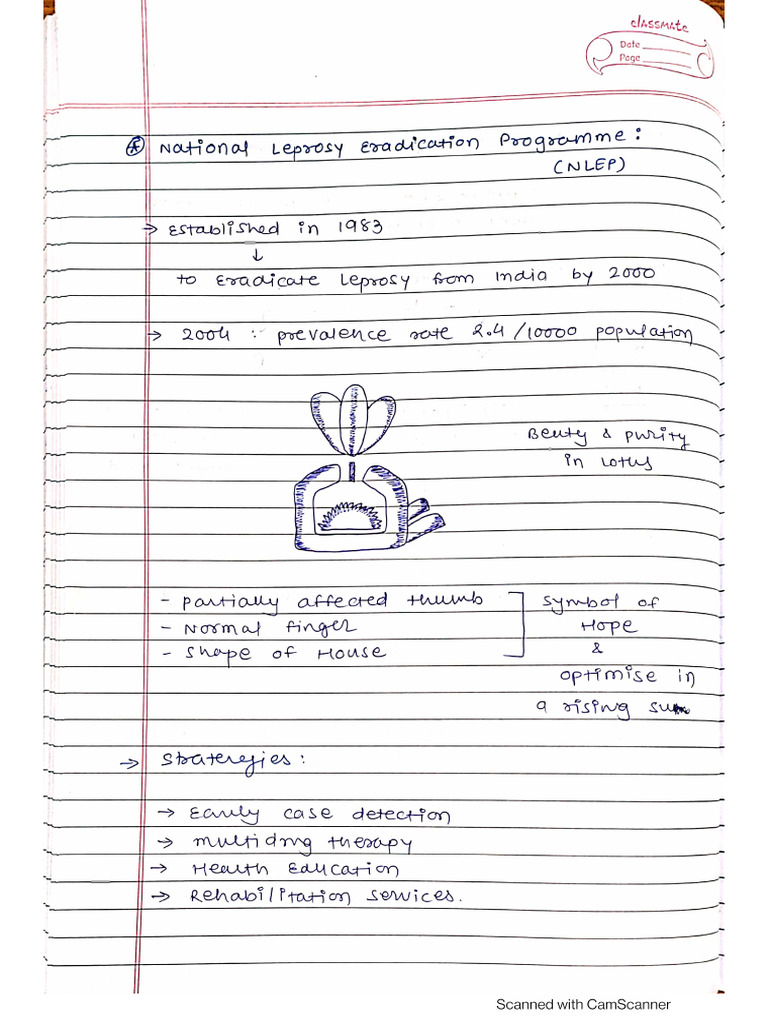 classmate
Date
Page
National Leprosy Eradication Programme:
(NLEP)
→ Established in 1983
↓
to Eradicate Leprosy from India by 2000
→ 2004 : prevalence rate 2.4/10000 population
Beuty & purity
in Lotus
- Partially affected thumb
- Normal finger
- Shape of House
Symbol of
Hope
&
optimise in
a rising sun
→ Straterejies:
→ Early case detection
→ multidrug therapy
→ Health Education
→ Rehabilitation services.
Scanned with CamScanner